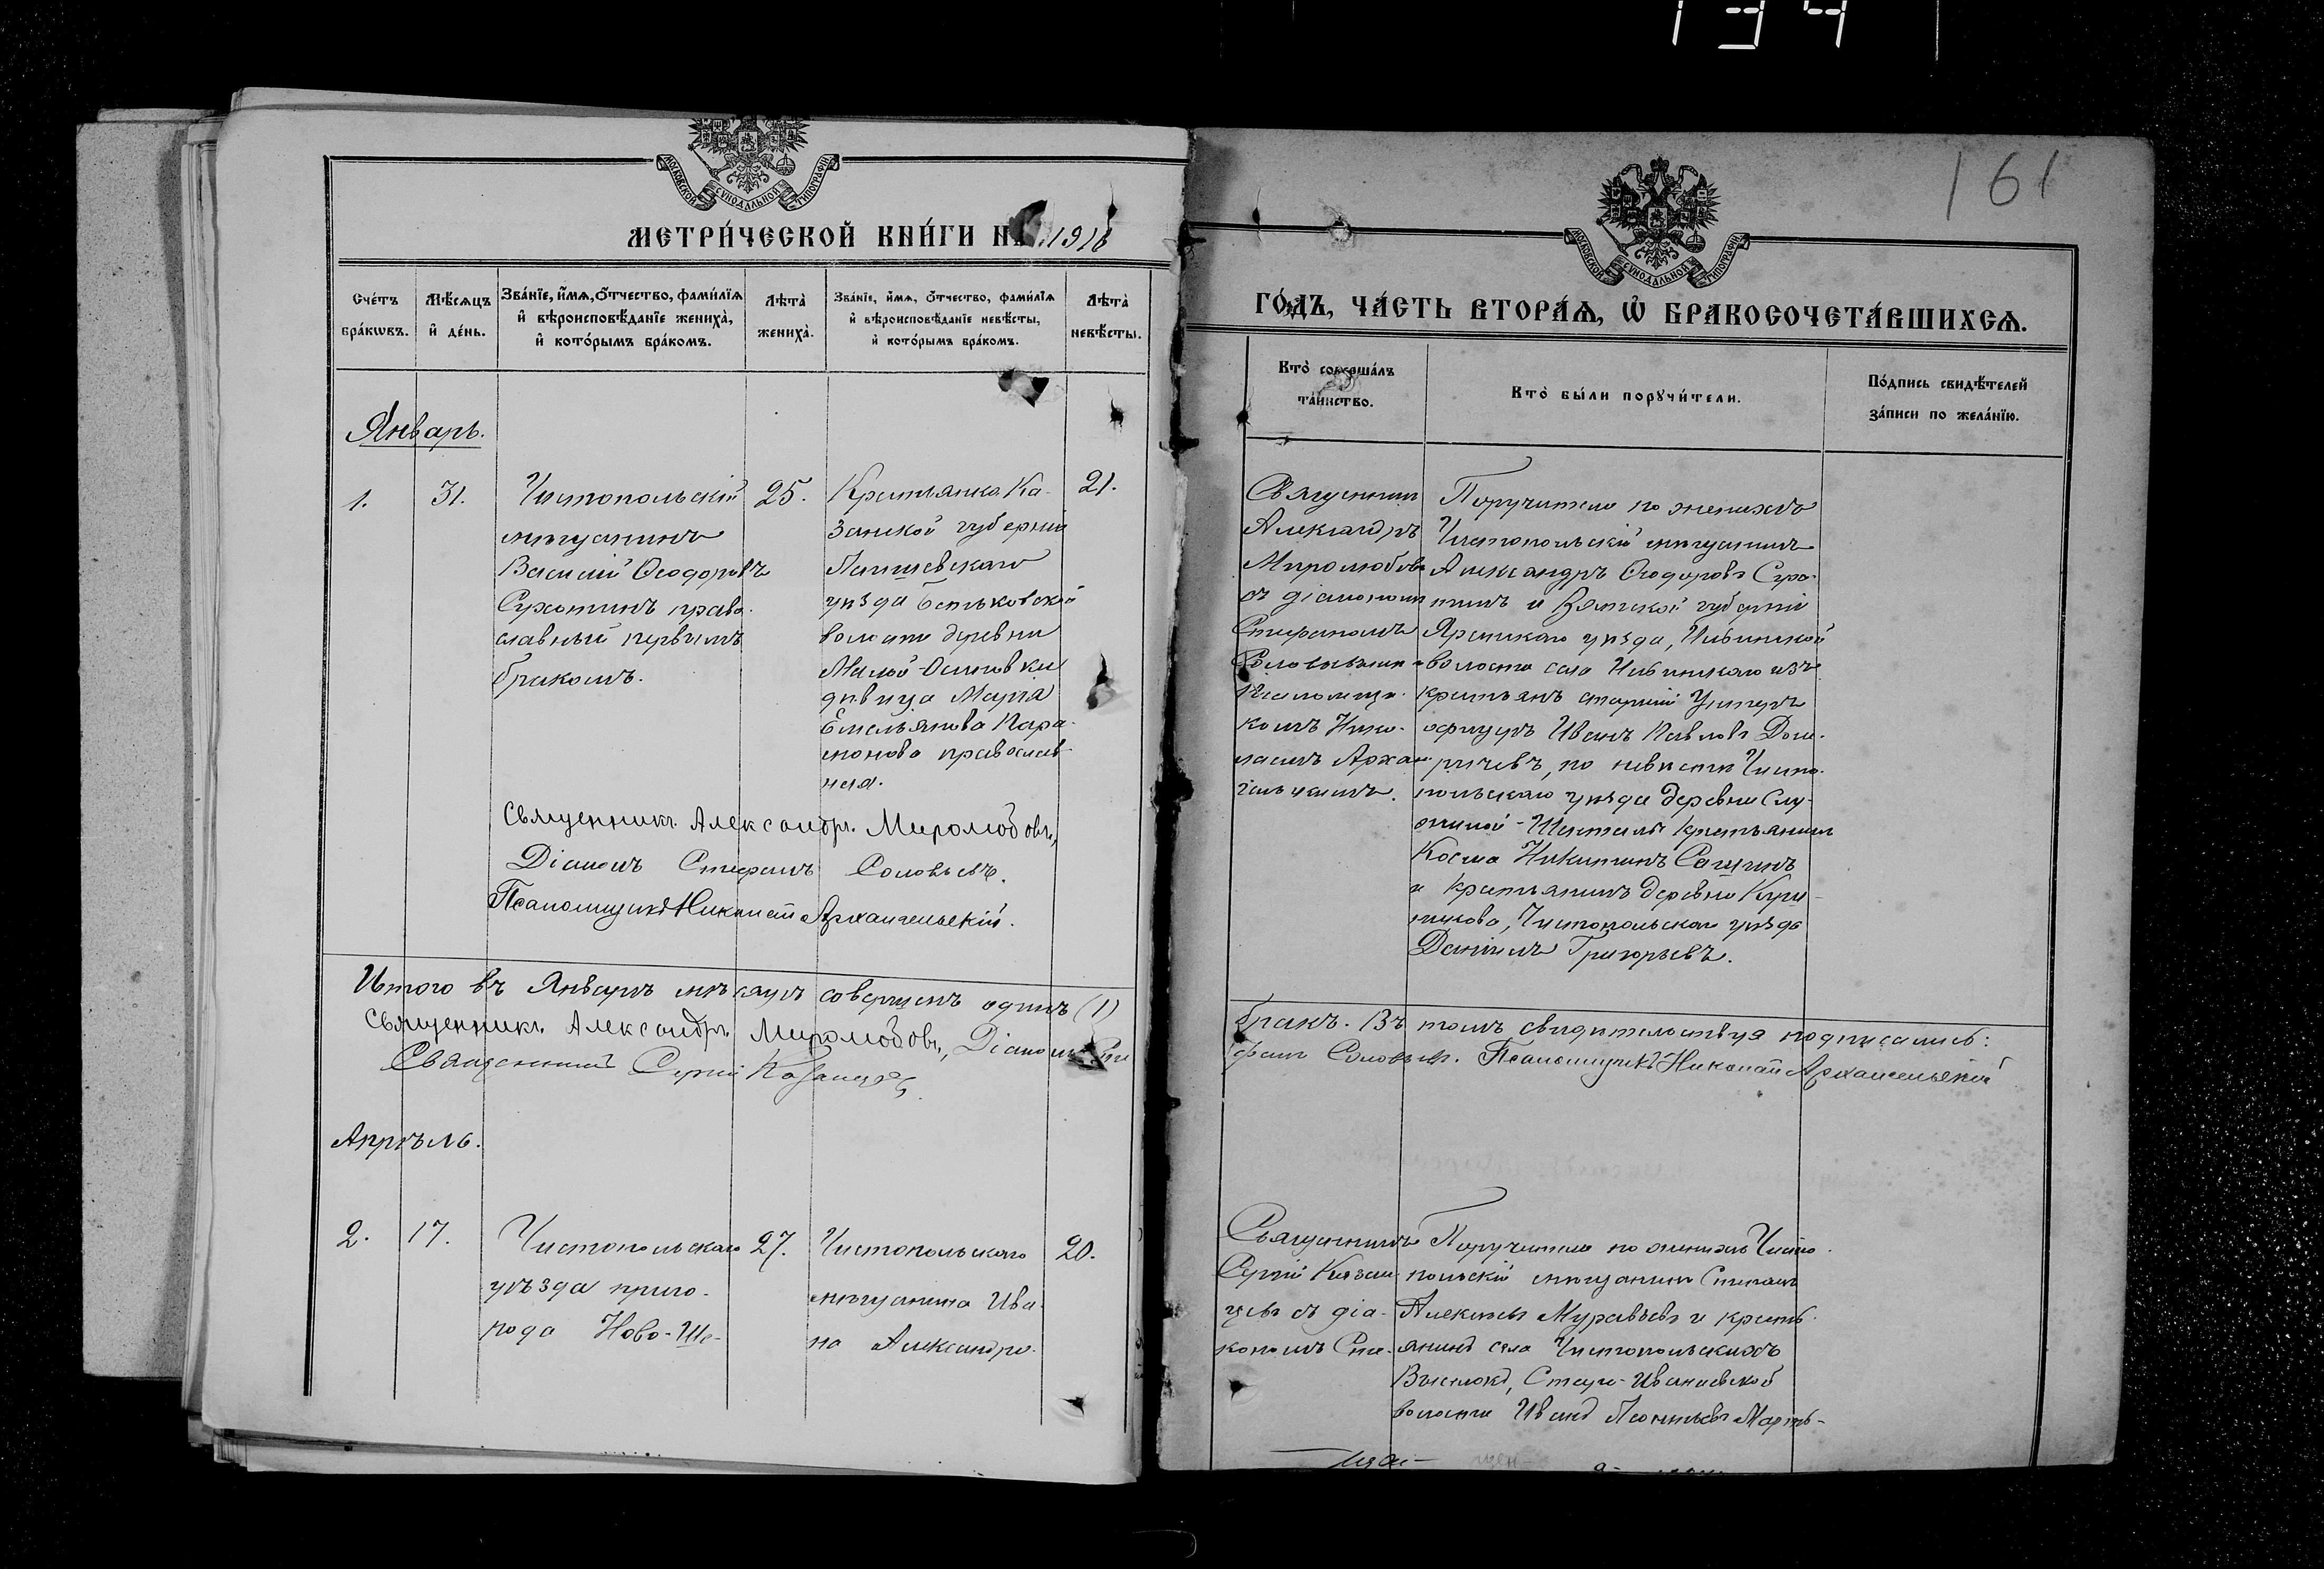 134
161
МОСКОВСКОЙ СѴНОДАЛЬНОЙ ТИПОГРАФІИ
МЕТРИ́ЧЕСКОЙ КНИ́ГИ НА 1918
Сче́тъ бра́кѡвъ.
Мѣ́сѧцъ и҆ де́нь.
Зва́нїе, и҆́мѧ, ѻ҆́тчество, фами́лїѧ
и҆ вѣроисповѣ́данїе жениха̀,
и҆ кото́рымъ бра́комъ.
Лѣта̀ жениха̀.
Зва́нїе, и҆́мѧ, ѻ҆́тчество, фами́лїѧ
и҆ вѣроисповѣ́данїе невѣ́сты,
и҆ кото́рымъ бра́комъ.
Лѣта̀ невѣ́сты.
Январь.
1.
31.
Чистопольскій
мѣщанинъ
Василій Ѳеодоровъ
Сухотинъ право-
славный первымъ
бракомъ.
25.
Крестьянка Ка-
занской губерніи
Лаишевскаго
уѣзда Бетьковской
волости деревни
Малой-Осиновки
дѣвица Марія
Емельянова Пара-
монова православ-
ная.
21.
Священникъ Александръ Миролюбовъ,
Діаконъ Стефанъ Соловьевъ.
Псаломщикъ Николай Архангельскій.
Итого въ Январѣ мѣсяцѣ совершенъ одинъ (1)
Священникъ Александръ Миролюбовъ, Діаконъ Сте
Священникъ Сергій Казанцевъ
Апрѣль.
2.
17.
Чистопольскаго
уѣзда приго-
рода Ново-Ше-
27.
Чистопольскаго
мѣщанина Ива-
на Александро-
20.
МОСКОВСКОЙ СѴНОДАЛЬНОЙ ТИПОГРАФІИ
ГО́ДЪ, ЧА́СТЬ ВТОРА́Ѧ, Ѽ БРАКОСОЧЕТА́ВШИХСѦ.
Кто̀ соверша́лъ
та́инство.
Кто̀ бы́ли порꙋчи́тели.
По́дпись свидѣ́телей
за́писи по жела́нїю.
Священникъ
Александръ
Миролюбовъ
съ діакономъ
Стефаномъ
Соловьевымъ и
Псаломщи-
комъ Нико-
лаемъ Архан-
гельскимъ.
Поручители по женихѣ
Чистопольскій мѣщанинъ
Александръ Ѳеодоровъ Сухо-
тинъ и Вятской губерніи
Яранскаго уѣзда,
волости села изъ
крестьянъ старшій Унтеръ
офицеръ Иванъ Павловъ
по невѣстѣ Чисто-
польскаго уѣзда деревни Слу-
жилой-Шентали крестьянинъ
Косма Никитинъ
и крестьянинъ деревни
Чистопольскаго уѣзда
Даніилъ Григорьевъ.
бракъ. Въ томъ свидѣтельствуя подписались:
фанъ Соловьевъ. Псаломщикъ Николай Архангельскій
Священникъ
Сергій Казан-
цевъ съ діа-
кономъ Сте-
Поручители по женихѣ Чисто-
польскій мѣщанинъ Степанъ
Алексѣевъ Муравьевъ и кресть-
янинъ села Чистопольскихъ
Выселокъ, Старо-Ивановской
волости Иванъ Леонтьевъ Марть-